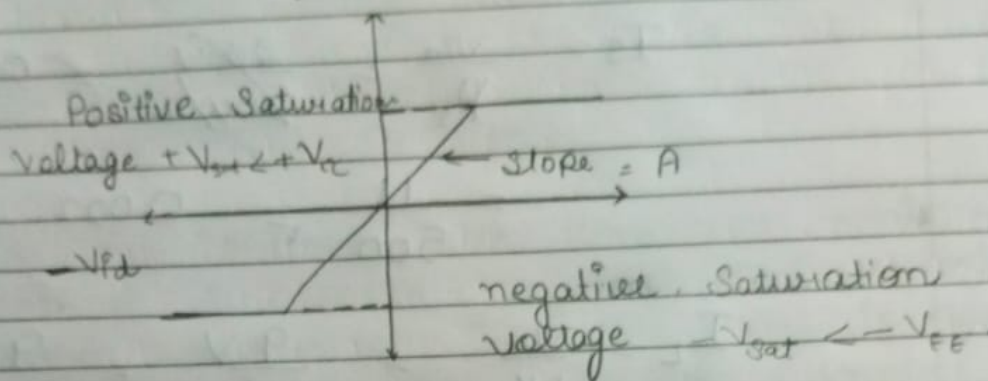 Positive Saturation
Voltage + Vsat < + Vcc
slope = A
- Vid
negative Saturation
Voltage - Vsat < - VEE